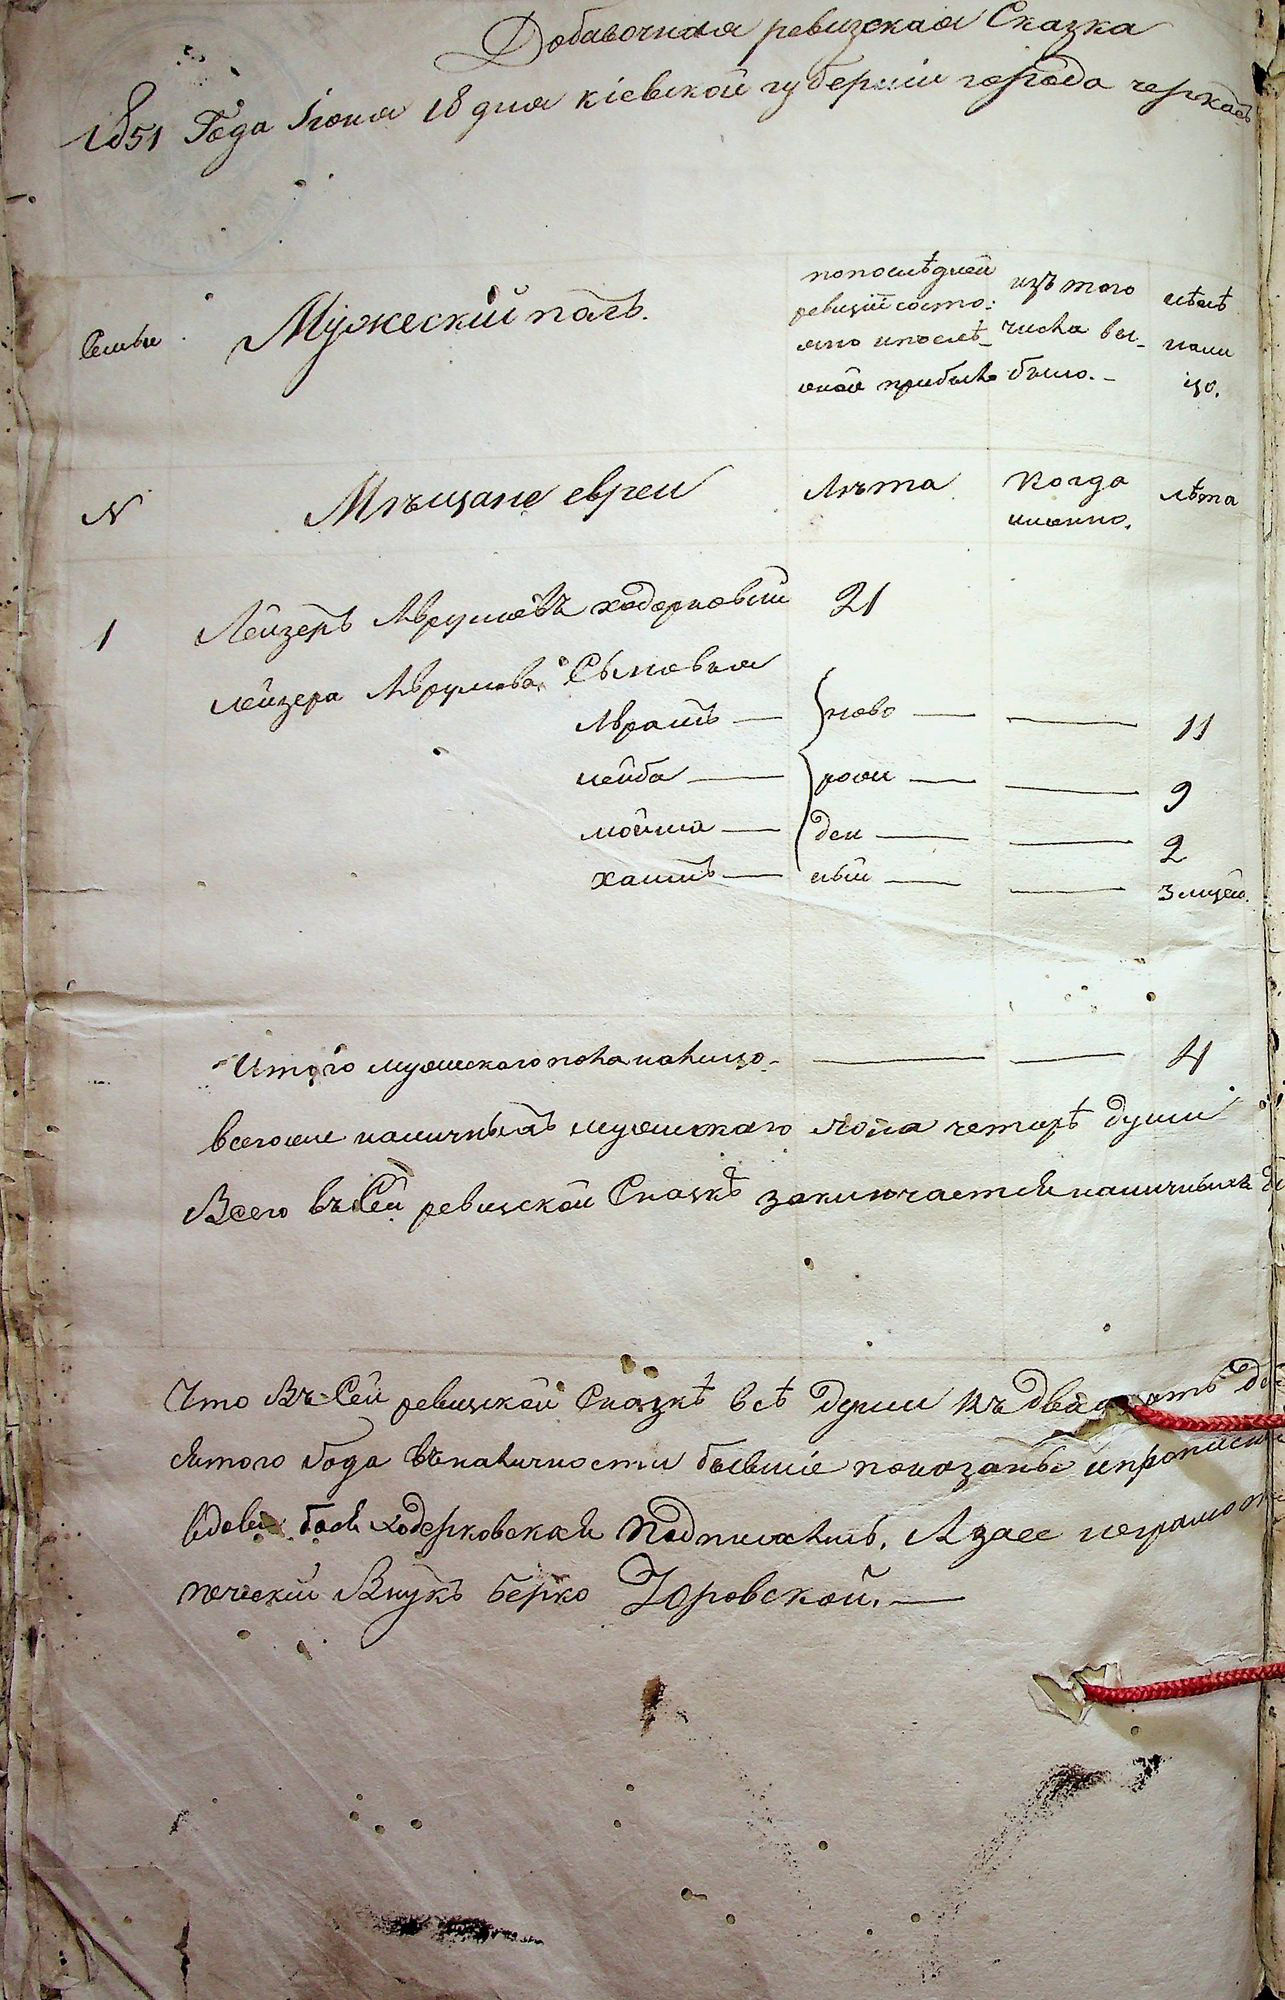 Добавочная ревизская Сказка
1851 Года Іюня 18 дня кіевской губерніи города черкасъ
Семьи
Мужескій полъ.
по послѣдней
ревизіи состо:
яло и послѣ
оной прибыло
изъ того
числа вы-
было.
нѣнѣ
нали
цо.
N
Мѣщане евреи
Лѣта
Когда
именно.
лѣта
1
Лейзеръ Аврумовъ ходорковскій
21
лейзера Аврумова Сыновья
Аврамъ — ново — — 11
лейба — рож — — 9
мойша — ден — — 2
хаимъ — ный — — 3 мцев.
Итого мужескаго пола налицо — — 4
всего же наличныхъ мужескаго пола четырѣ души
Всего въ Сей ревизской Сказкѣ заключается наличныхъ
Что Въ Сей ревизской Сказкѣ всѣ души къ
сятого Года въ наличности бывшіе показаны и
вдова бася ходорковская Подписалась, А за ее
внукъ берко Юровской.—